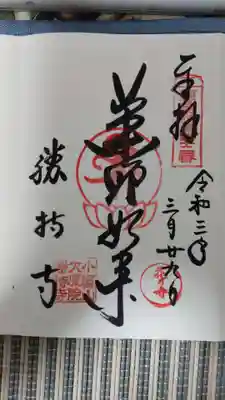 奉拝
令和三年
三月廿九日
薬師如来
勝持寺
花の寺